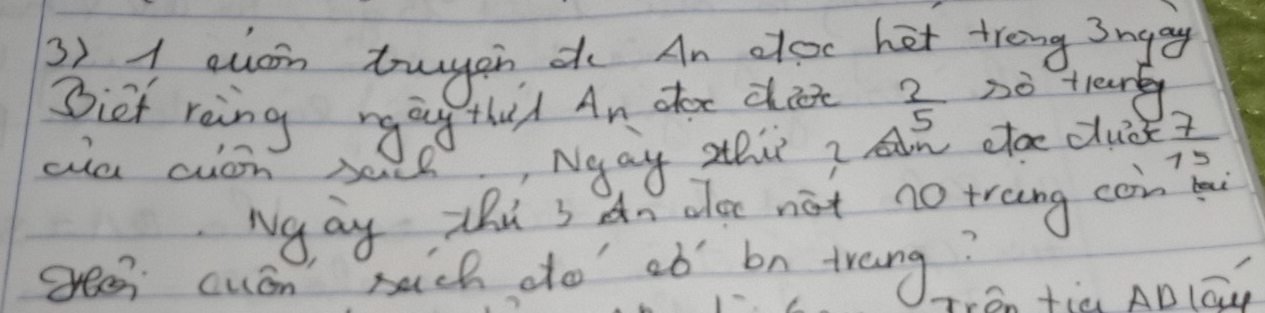 3) 1 cuốn truyện dc An đọc hết trong 3 ngày
Biết rằng ngày thứ 1 An đọc được 2/5 số trang
của cuốn sách. Ngày thứ 2 An đọc được 7/15
Ngày thứ 3 An đọc nốt 10 trang còn lại
Hỏi cuốn sách đó có bn trang?
Trên tia AB lấy